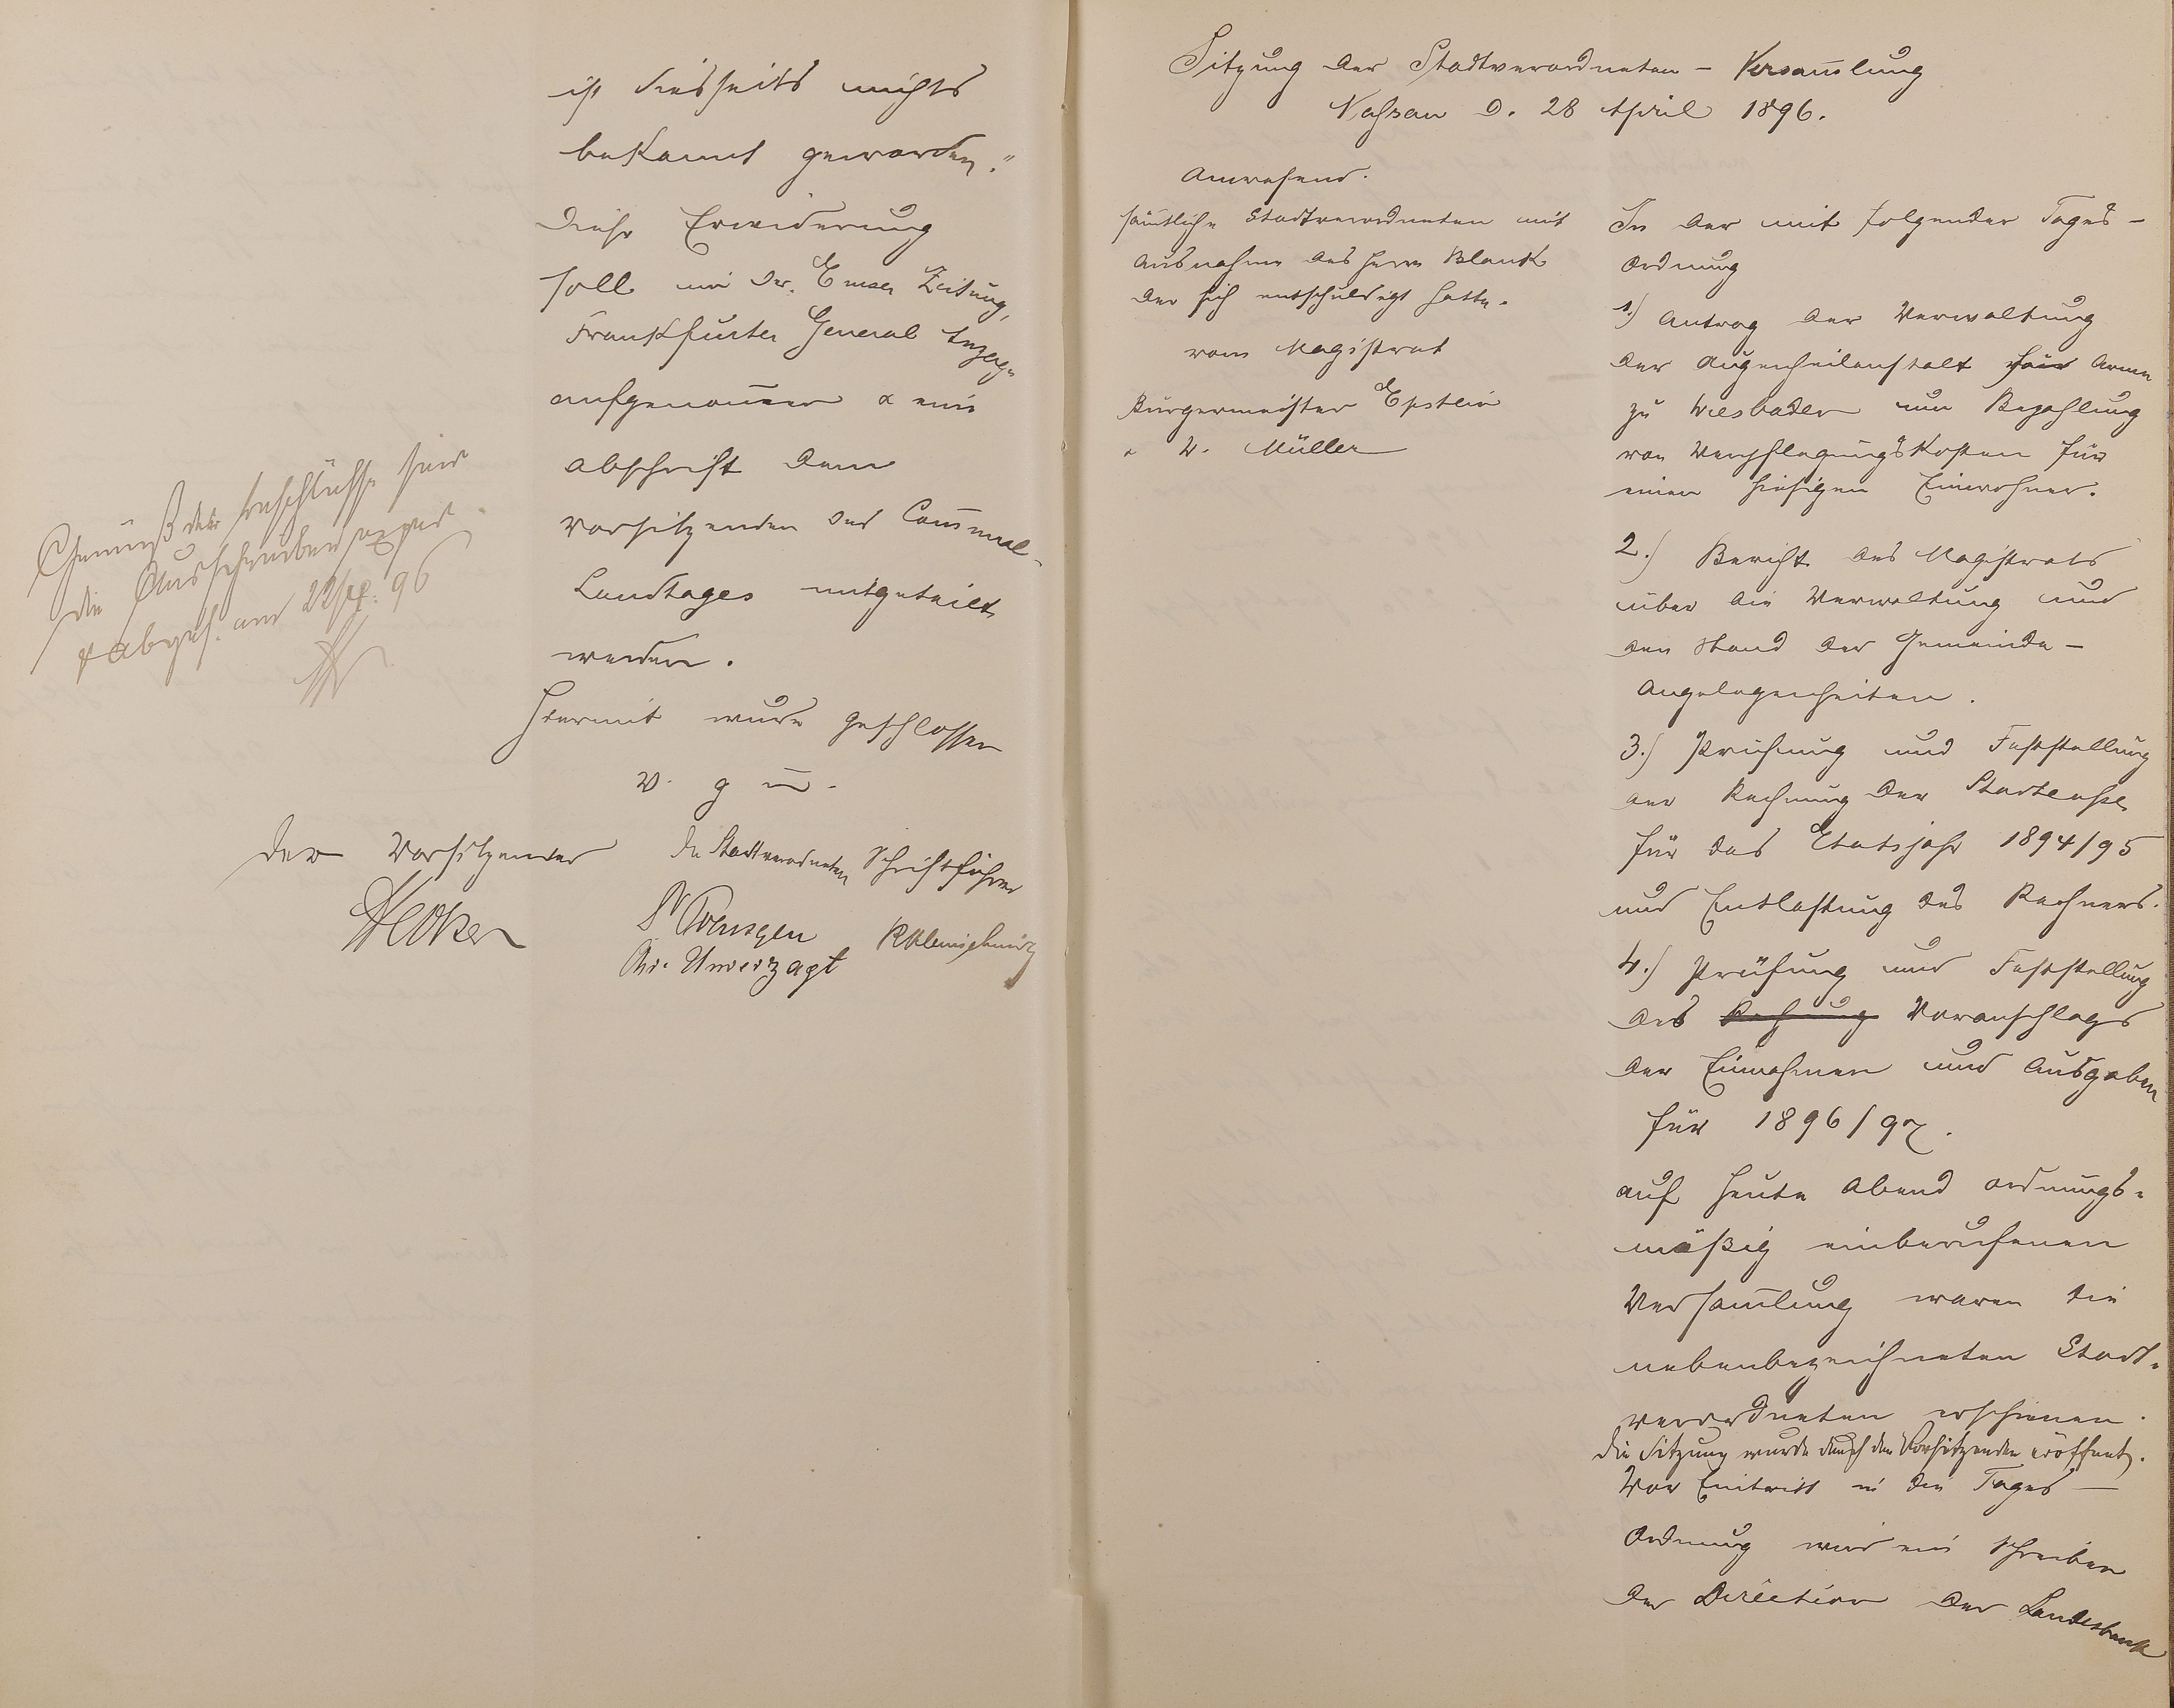 ist diesseits nichts
bekannt geworden."
Diese Erwiderung
soll in der Emser Zeitung,
Frankfurter General Anzeig.
aufgenom̅en & eine
Abschrift dem
Vorsitzenden des Com̅unal-
Landtages mitgeteilt
werden.
Hiermit wurde geschlossen
v. g. u.
Der Vorsitzende
Die Stadtverordneten Schriftführer
Unverzagt
Gemäß der Beschlüsse sind
die Ausschreiben
& abges. am 22/4. 96
Sitzung der Stadtverordneten - Versam̅lung
Nassau d. 28 April 1896.
Anwesend.
säm̅tliche Stadtverordneten mit
Ausnahme des Herrn Blank
der sich entschuldigt hatte.
vom Magistrat
Bürgermeister Epstein
" W. Müller
In der mit folgender Tages-
ordnung
1.) Antrag der Verwaltung
der Augenheilanstalt für Arme
zu Wiesbaden um Bezahlung
von Verpflegungskosten für
einen hiesigen Einwohner.
2.) Bericht des Magistrats
über die Verwaltung und
den Stand der Gemeinde-
Angelegenheiten.
3.) Prüfung und Feststellung
der Rechnung der Stadtcasse
für das Etatsjahr 1894/95
und Entlastung des Rechners.
4.) Prüfung und Feststellung
des Rechnung Voranschlags
der Einnahmen und Ausgaben
für 1896/97.
auf heute Abend ordnungs-
mäßig einberufenen
Versam̅lung waren die
nebenbezeichneten Stadt-
verordneten erschienen.
Die Sitzung wurde durch den Vorsitzenden eröffnet.
Vor Eintritt in die Tages-
Ordnung wird ein Schreiben
der Direction der Landesbank